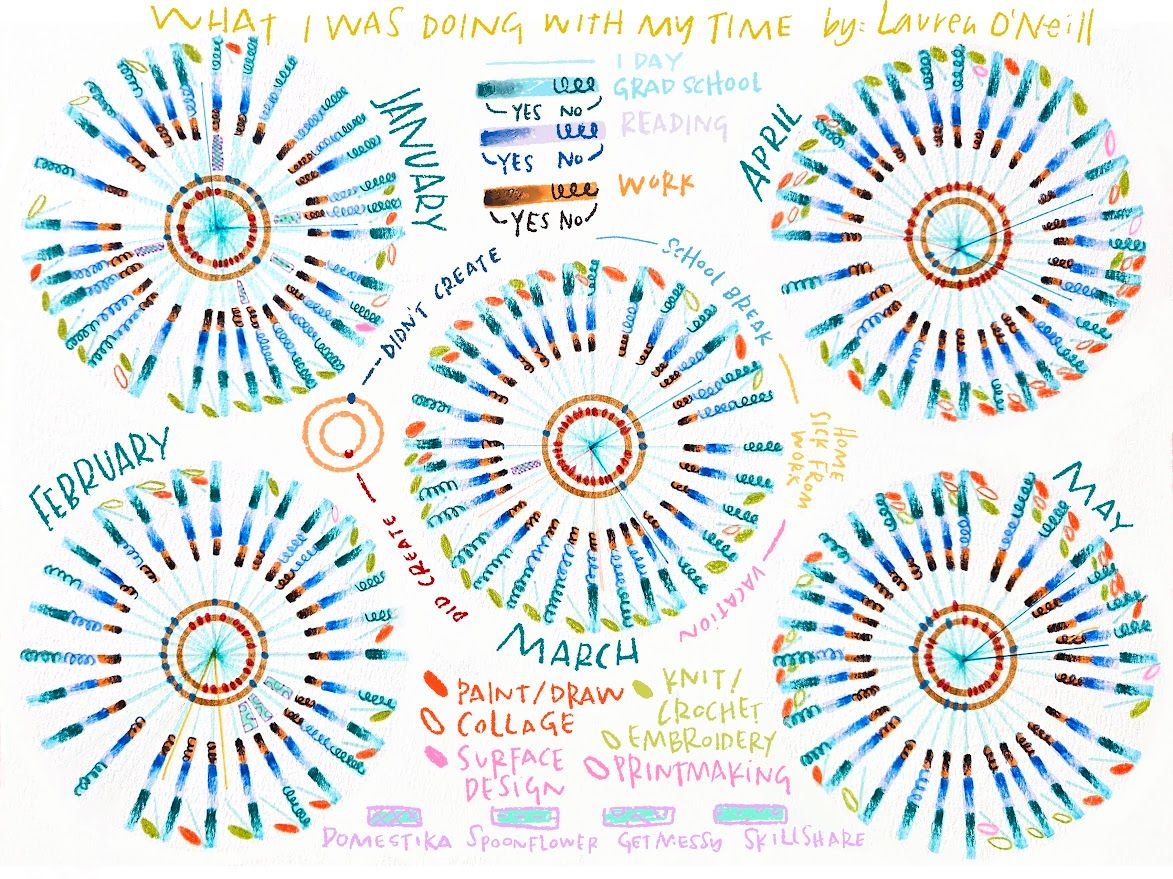 WHAT I WAS DOING WITH MY TIME by: Lauren O'Neill
1 DAY
GRAD SCHOOL
YES NO
READING
YES NO
WORK
YES NO
JANUARY
APRIL
DIDN'T CREATE
SCHOOL BREAK
HOME
SICK FROM
WORK
VACATION
DID CREATE
FEBRUARY
MARCH
MAY
PAINT/DRAW
COLLAGE
SURFACE
DESIGN
KNIT/
CROCHET
EMBROIDERY
PRINTMAKING
DOMESTIKA SPOONFLOWER GET MESSY SKILLSHARE